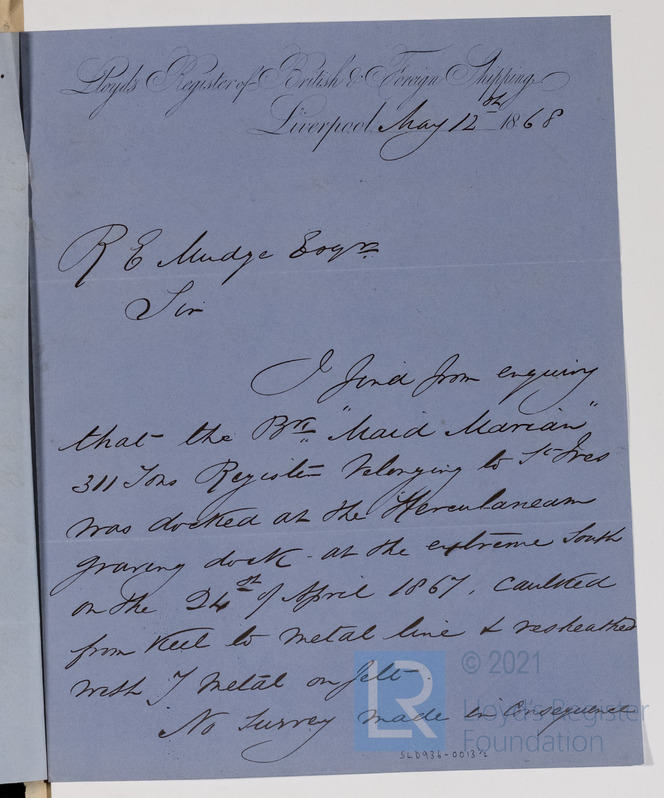 Lloyd's Register of British & Foreign Shipping
Liverpool May 12th 1868
R E Mudge Esqre
Sir
I find from enquiry
that the Brk "Maid Marian"
311 Tons Register belonging to St Ives
was docked at the Herculaneam
graving dock at the extreme South
on the 24th of April 1867, caulked
from keel to metal line & resheathed
with Y metal on felt.
No Survey made in Consequence
LR
© 2021
Lloyd's Register
Foundation
SLD936-0013